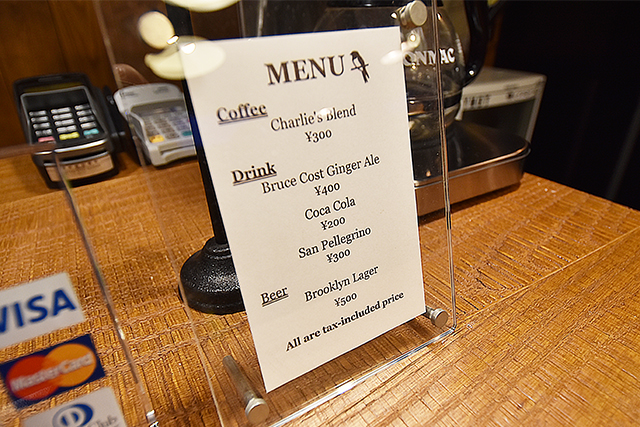 MENU
Coffee
Charlie's Blend
¥300
Drink
Bruce Cost Ginger Ale
¥400
Coca Cola
¥200
San Pellegrino
¥300
Beer
Brooklyn Lager
¥500
All are tax-included price
VISA
MasterCard
Diners Club